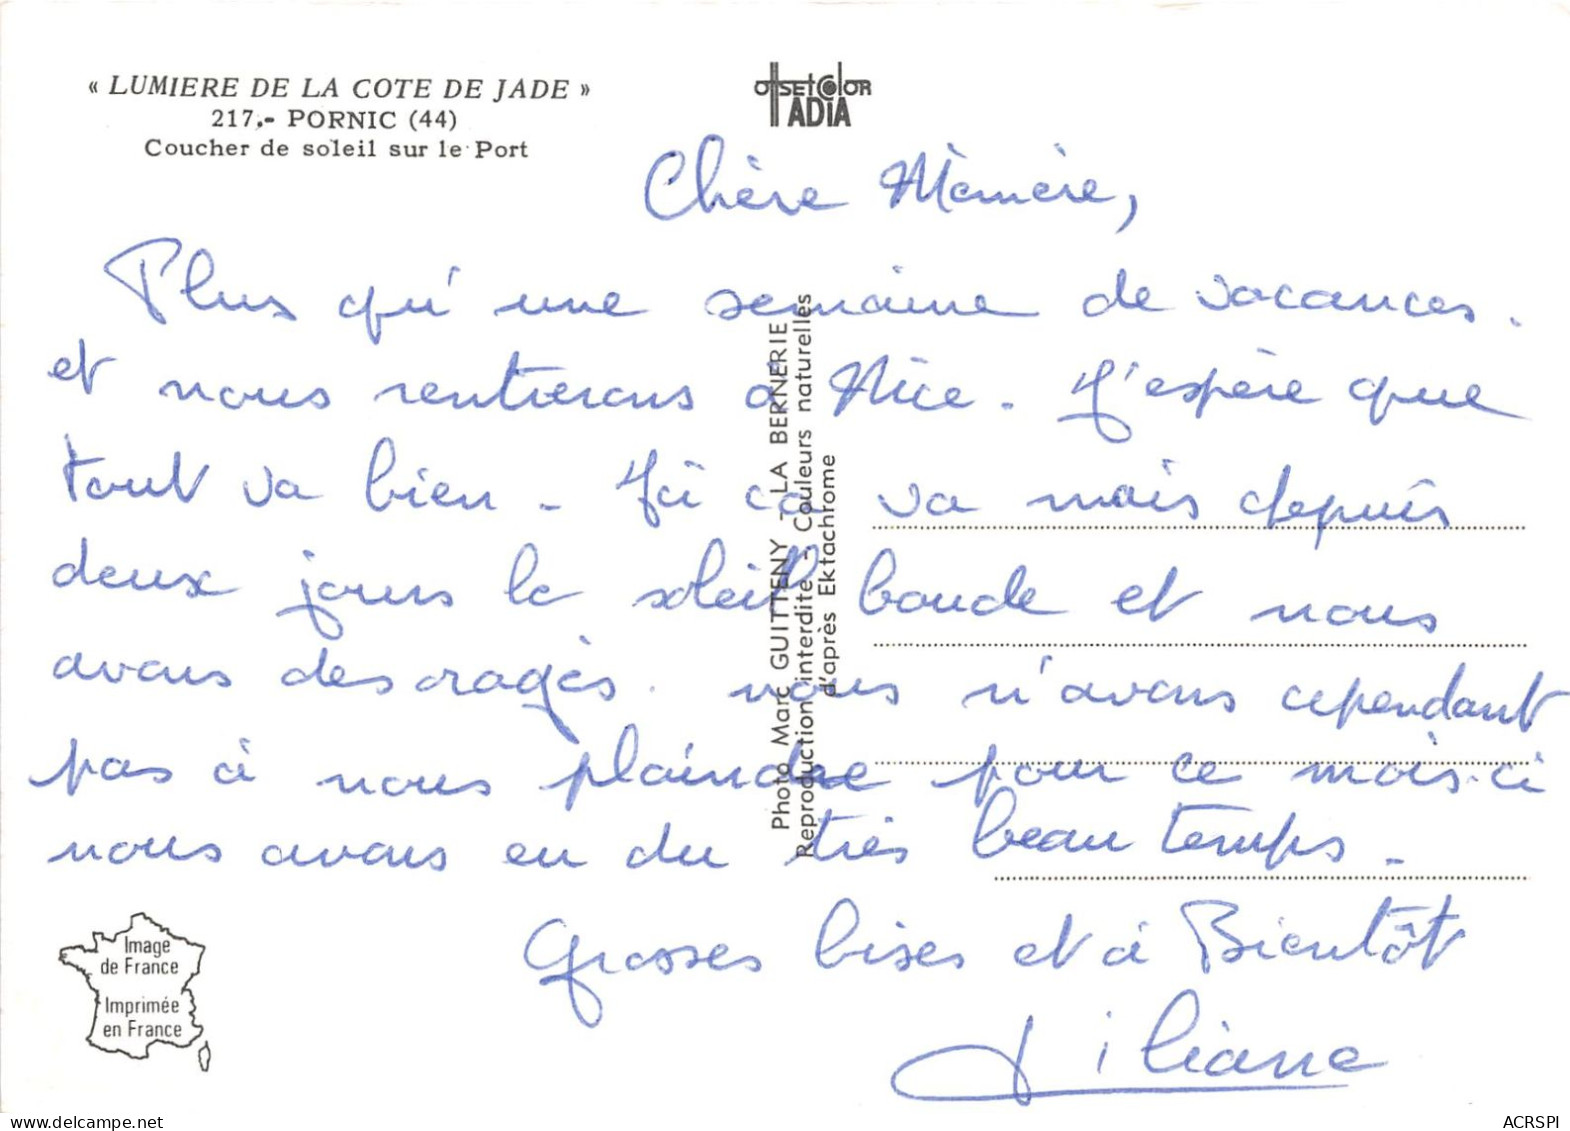 « LUMIERE DE LA COTE DE JADE »
217.- PORNIC (44)
Coucher de soleil sur le Port
OffSEtColOR
TADiA
Chère Mèmère,
Plus qu'une semaine de vacances.
et nous rentrerons à Nice. J'espère que
tout va bien - Ici ca va mais depuis
deux jours le soleil boude et nous
avons des oragès. nous n'avons cependant
pas à nous plaindre pour ce mois-ci
nous avons eu du très beau temps -
Grosses bises et à Bientôt
Liliane
Photo Marc GUITTENY - LA BERNERIE
Reproduction interdite - Couleurs naturelles
d'après Ektachrome
Image
de France
Imprimée
en France
delcampe.net
ACRSPI